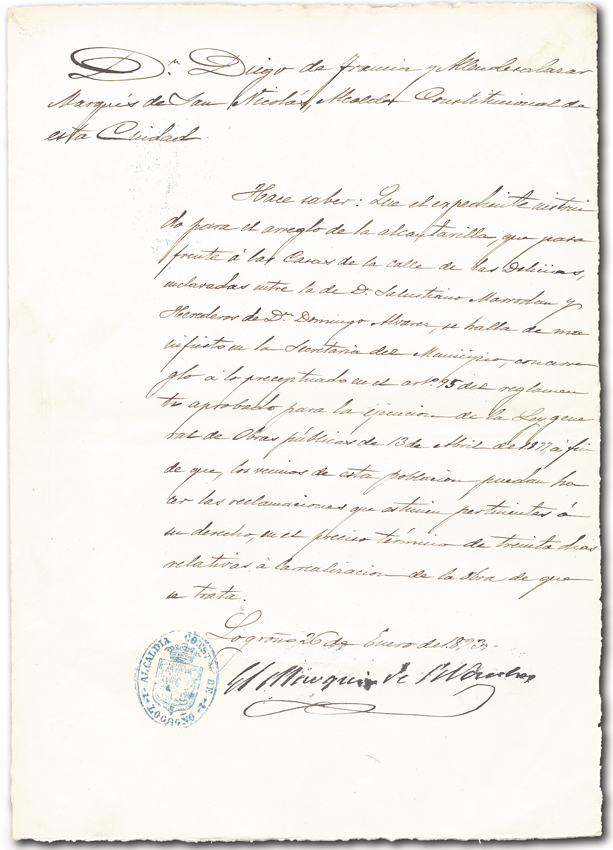 Dn. Diego de Francia y Allendesalazar
Marqués de San Nicolás, Alcalde Constitucional de
esta Cuidad.
Hace saber: Que el expediente instrui
do para el arreglo de la alcantarilla, que pasa
frente á las Casas de la calle de las Delicias,
enclavadas entre la de D. Salustiano Marrodan y
Herederos de Dn. Domingo Alvarez, se halla de ma
nifiesto en la Secretaria del Municipio, con arre
glo á lo preceptuado en el arto. 95 del reglamen
to aprobado para la ejecucion de la Ley gene
ral de Obras públicas de 13 de Abril de 1877, á fin
de que, los vecinos de esta poblacion puedan ha
cer las reclamaciones que estimen pertinentes á
su derecho, en el preciso término de treinta dias
relativas á la realizacion de la obra de que
se trata.
Logroño 26 de Enero de 1893.
El Marqués de S. Nicolas
ALCALDIA CONSTL. DE
LOGROÑO